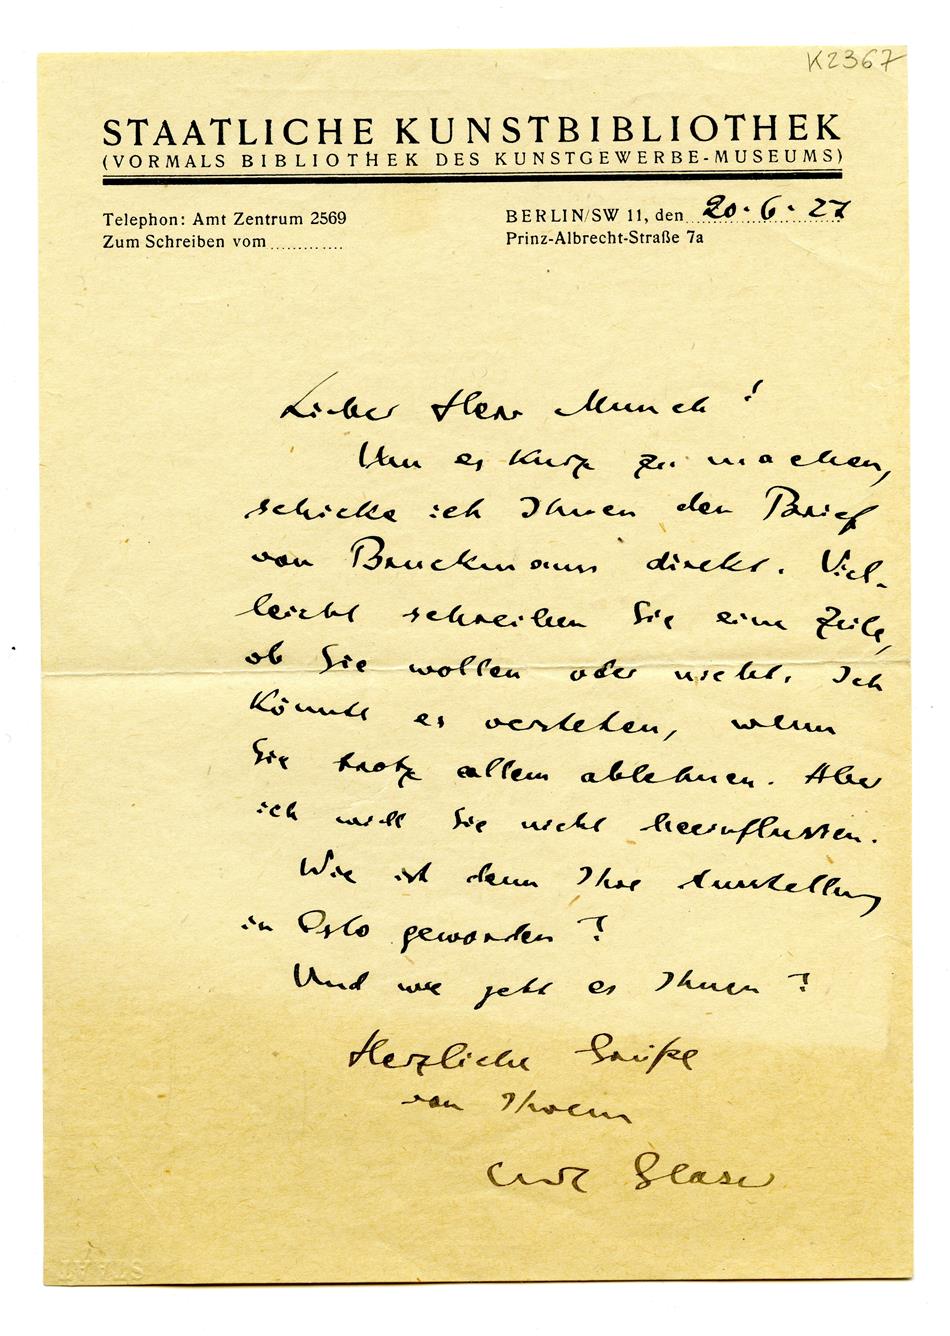 K2367
STAATLICHE KUNSTBIBLIOTHEK
(VORMALS BIBLIOTHEK DES KUNSTGEWERBE-MUSEUMS)
Telephon: Amt Zentrum 2569
Zum Schreiben vom ............
BERLIN/SW 11, den 20. 6. 27
Prinz-Albrecht-Straße 7a
Lieber Herr Munch!
Um es kurz zu machen,
schicke ich Ihnen den Brief
von Bruckmann direkt. Viel-
leicht schreiben Sie eine Zeile,
ob Sie wollen oder nicht. Ich
könnte es verstehen, wenn
Sie trotz allem ablehnen. Aber
ich will Sie nicht beeinflussen.
Wie ist denn Ihre Ausstellung
in Oslo geworden?
Und wie geht es Ihnen?
Herzliche Grüße
von Ihrem
Curt Glaser
STAAT